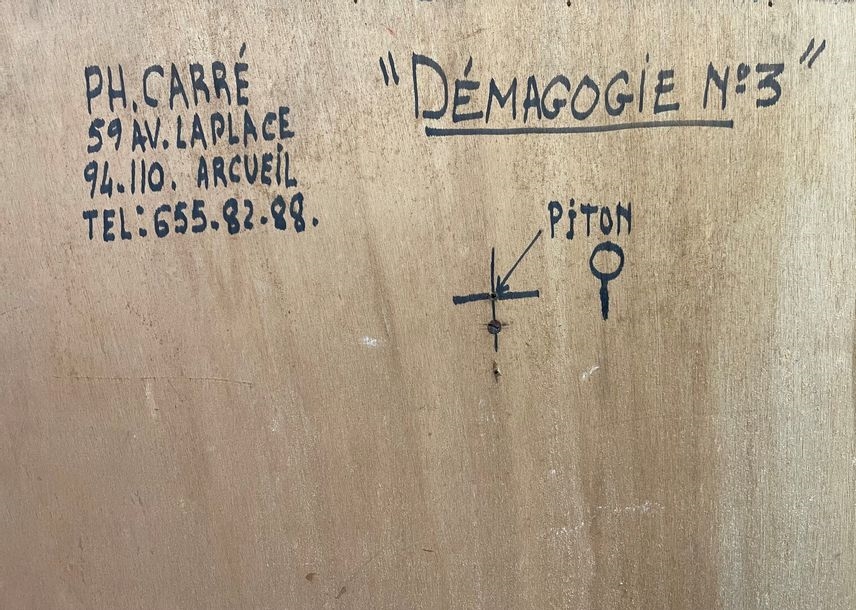 PH. CARRÉ
59 AV. LAPLACE
94.110. ARCUEIL
TEL: 655.82.88.
"DÉMAGOGIE Nº3"
PITON